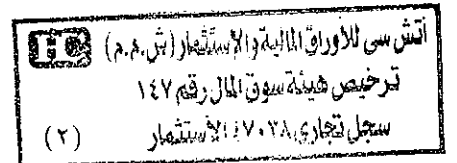 اتش سي للأوراق المالية والإستثمار (ش.م.م) HC
ترخيص هيئة سوق المال رقم ١٤٧
سجل تجاري ٤٧٠٣٨ الأستثمار (٢)